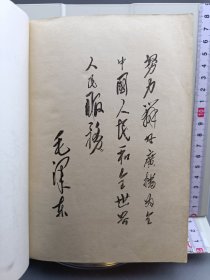 努力办好广播为全
中國人民和全世界
人民服务
毛澤东